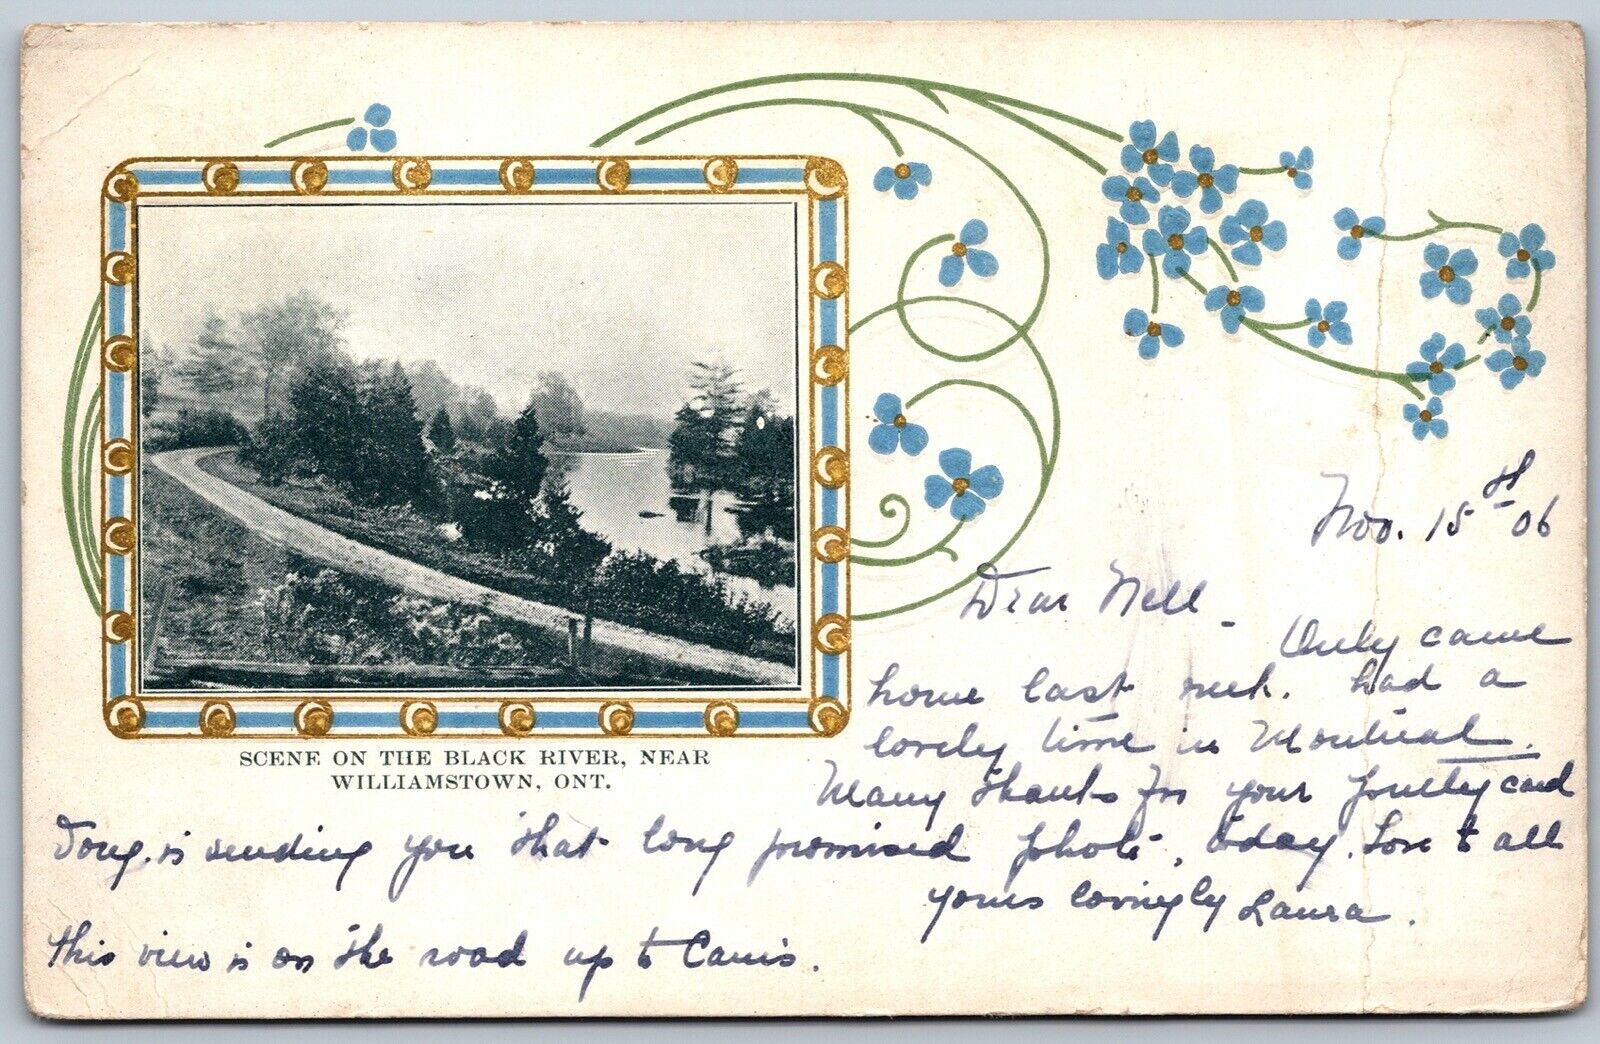 SCENE ON THE BLACK RIVER, NEAR
WILLIAMSTOWN, ONT.
Nov. 15th 06
Dear Nell -
Only came
home last week. had a
lovely time in Montreal.
Many thanks for your card
Doug. is sending you that long promised photo, today. Love to all
yours lovingly Laura.
This view is on the road up to